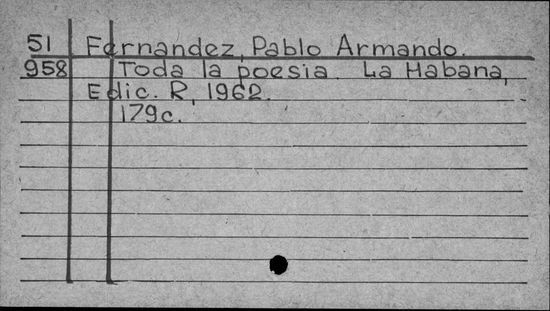 51 Fernandez, Pablo Armando.
958 Toda la poesia. La Habana,
Edic. R, 1962.
179c.